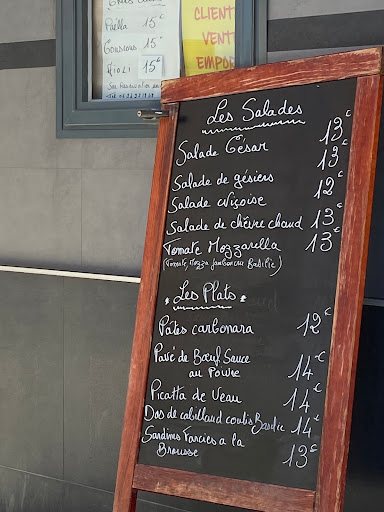 Paëlla 15€
Couscous 15€
Aïoli 15€
Sur Réservation au
CLIENT
VENT
EMPOR
Les Salades
Salade César 13€
Salade de gésiers 13€
Salade niçoise 12€
Salade de chèvre chaud 13€
Tomate Mozzarella 13€
(Tomate, Mozza jambon cru Basilic)
Les Plats
Pâtes carbonara 12€
Pavé de Bœuf Sauce
au Poivre 14€
Picatta de Veau 14€
Dos de cabillaud coulis Basilic 14€
Sardines Farcies a la
Brousse 13€